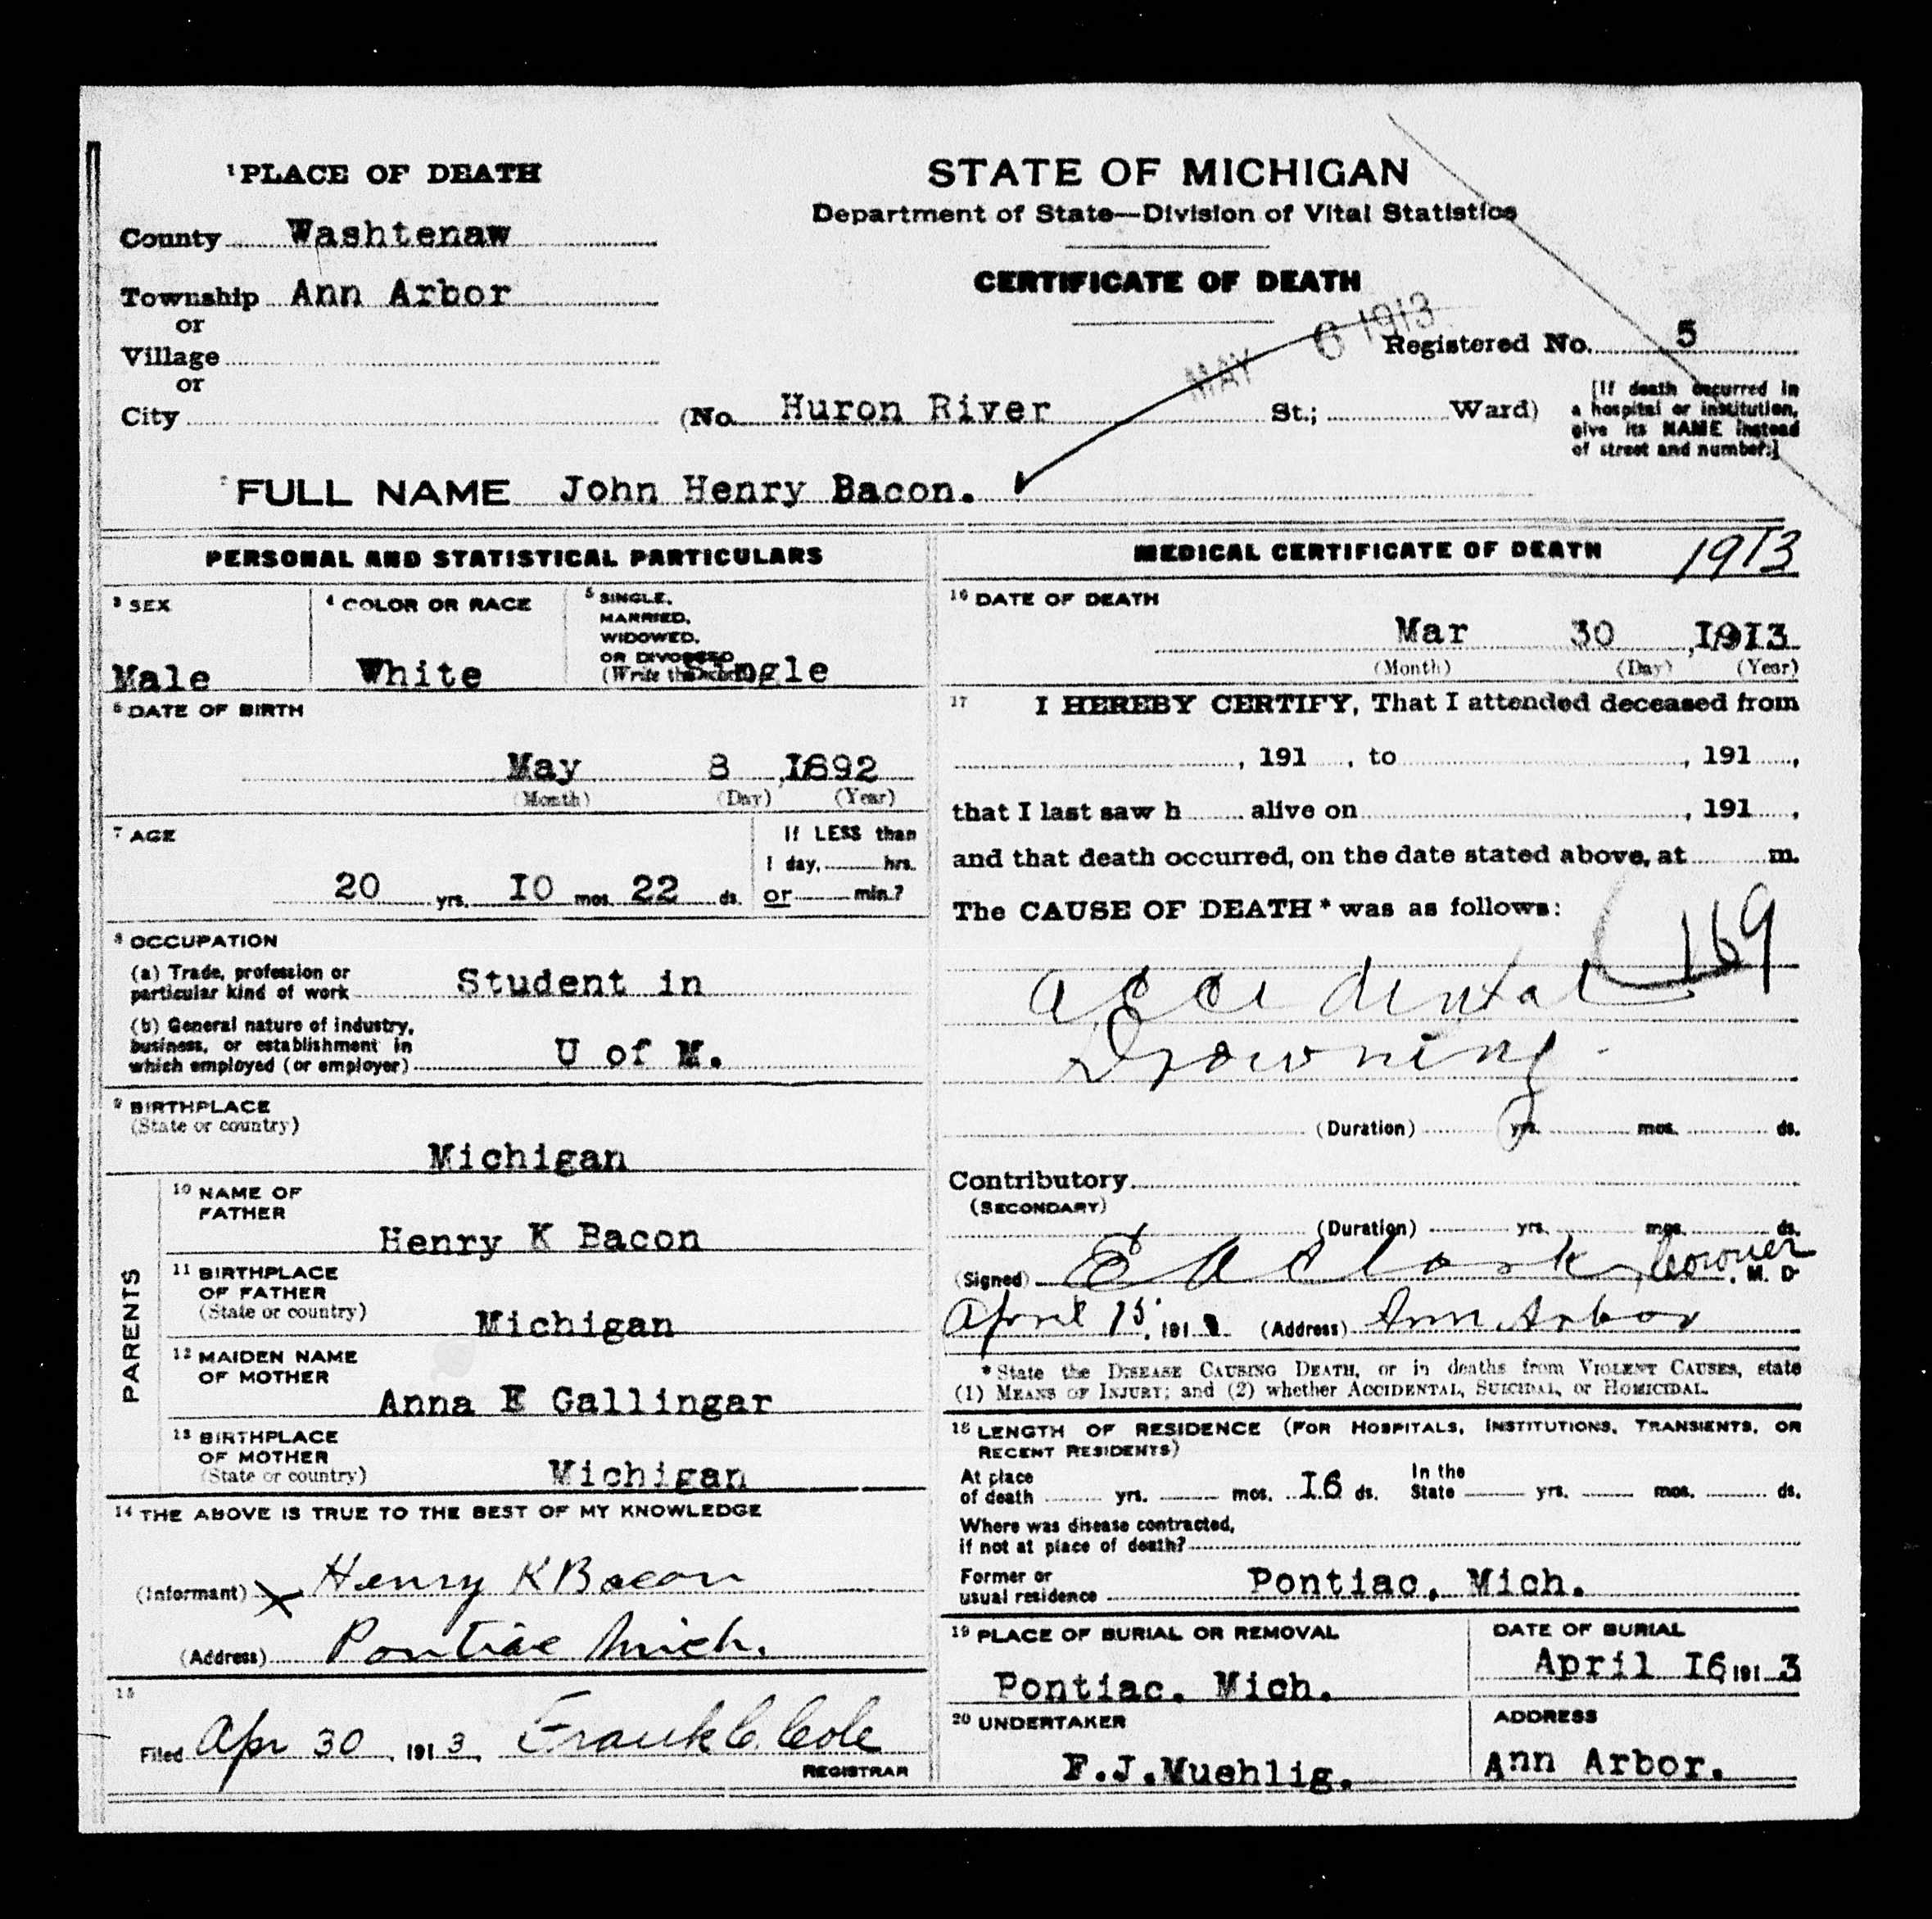 1 PLACE OF DEATH
County Washtenaw
Township Ann Arbor
or
Village
or
City
STATE OF MICHIGAN
Department of State—Division of Vital Statistics
CERTIFICATE OF DEATH
MAY 6 1913
Registered No. 5
(No. Huron River St.; Ward)
[If death occurred in
a hospital or institution,
give its NAME instead
of street and number.]
2 FULL NAME John Henry Bacon.
PERSONAL AND STATISTICAL PARTICULARS
3 SEX
Male
4 COLOR OR RACE
White
5 SINGLE,
MARRIED,
WIDOWED,
OR DIVORCED
(Write the word) Single
6 DATE OF BIRTH
May 8, I892
(Month) (Day) (Year)
7 AGE
20 yrs. I0 mos. 22 ds.
If LESS than
1 day, hrs.
or min.?
8 OCCUPATION
(a) Trade, profession or
particular kind of work Student in
(b) General nature of industry,
business, or establishment in
which employed (or employer) U of M.
9 BIRTHPLACE
(State or country)
Michigan
PARENTS
10 NAME OF
FATHER
Henry K Bacon
11 BIRTHPLACE
OF FATHER
(State or country) Michigan
12 MAIDEN NAME
OF MOTHER
Anna E Gallingar
13 BIRTHPLACE
OF MOTHER
(State or country) Michigan
14 THE ABOVE IS TRUE TO THE BEST OF MY KNOWLEDGE
(Informant) X Henry K Bacon
(Address) Pontiac Mich.
15
Filed Apr 30, 1913, Frank C. Cole
REGISTRAR
MEDICAL CERTIFICATE OF DEATH 1913
16 DATE OF DEATH
Mar 30, I9I3
(Month) (Day) (Year)
17 I HEREBY CERTIFY, That I attended deceased from
, 191 , to , 191 ,
that I last saw h alive on , 191 ,
and that death occurred, on the date stated above, at m.
The CAUSE OF DEATH* was as follows:
169
Accidental
Drowning
(Duration) yrs. mos. ds.
Contributory
(SECONDARY)
(Duration) yrs. mos. ds.
(Signed) E A Clark, Coroner, M. D.
April 15, 191 (Address) Ann Arbor
* State the DISEASE CAUSING DEATH, or in deaths from VIOLENT CAUSES, state
(1) MEANS OF INJURY; and (2) whether ACCIDENTAL, SUICIDAL, or HOMICIDAL.
18 LENGTH OF RESIDENCE (FOR HOSPITALS, INSTITUTIONS, TRANSIENTS, OR
RECENT RESIDENTS)
At place
of death yrs. mos. I6 ds.
In the
State yrs. mos. ds.
Where was disease contracted,
if not at place of death?
Former or
usual residence Pontiac, Mich.
19 PLACE OF BURIAL OR REMOVAL
Pontiac, Mich.
DATE OF BURIAL
April I6, 1913
20 UNDERTAKER
F.J.Muehlig.
ADDRESS
Ann Arbor.